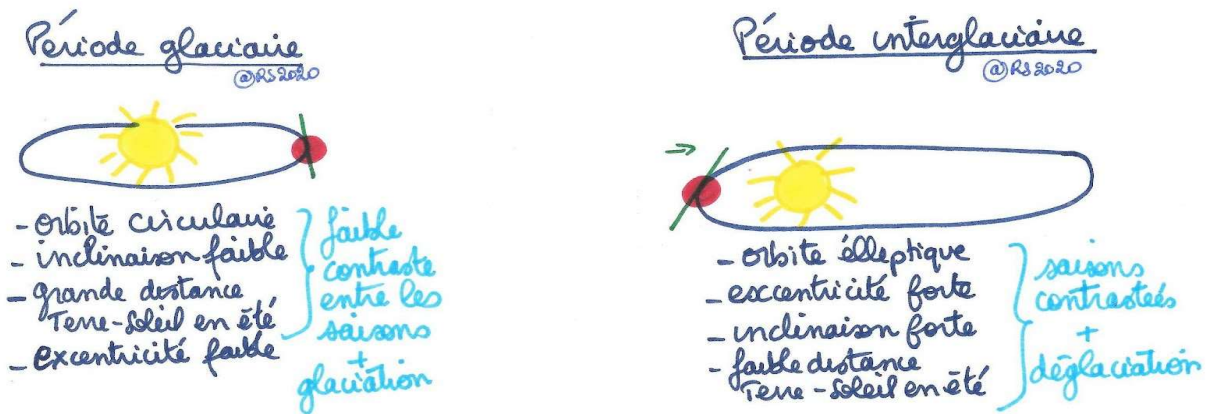 Période glaciaire
@RS2020
- orbite circulaire
- inclinaison faible
- grande distance
Terre-Soleil en été
- excentricité faible
faible
contraste
entre les
saisons
+
glaciation
Période interglaciaire
@RS2020
- orbite élleptique
- exccentricité forte
- inclinaison forte
- faible distance
Terre-Soleil en été
saisons
contrasteés
+
déglaciation